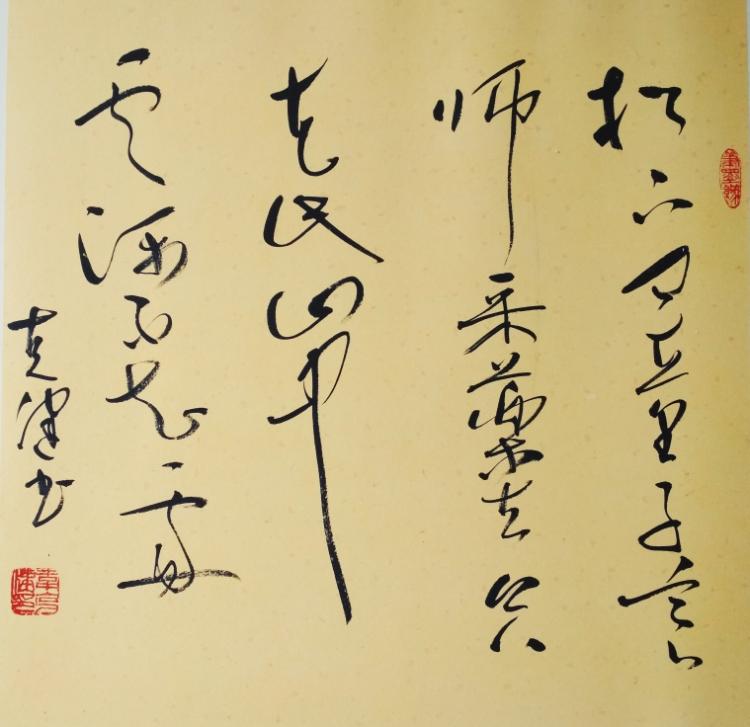 松下问童子言
师采藥去只
在此山中
云深不知处
克健书